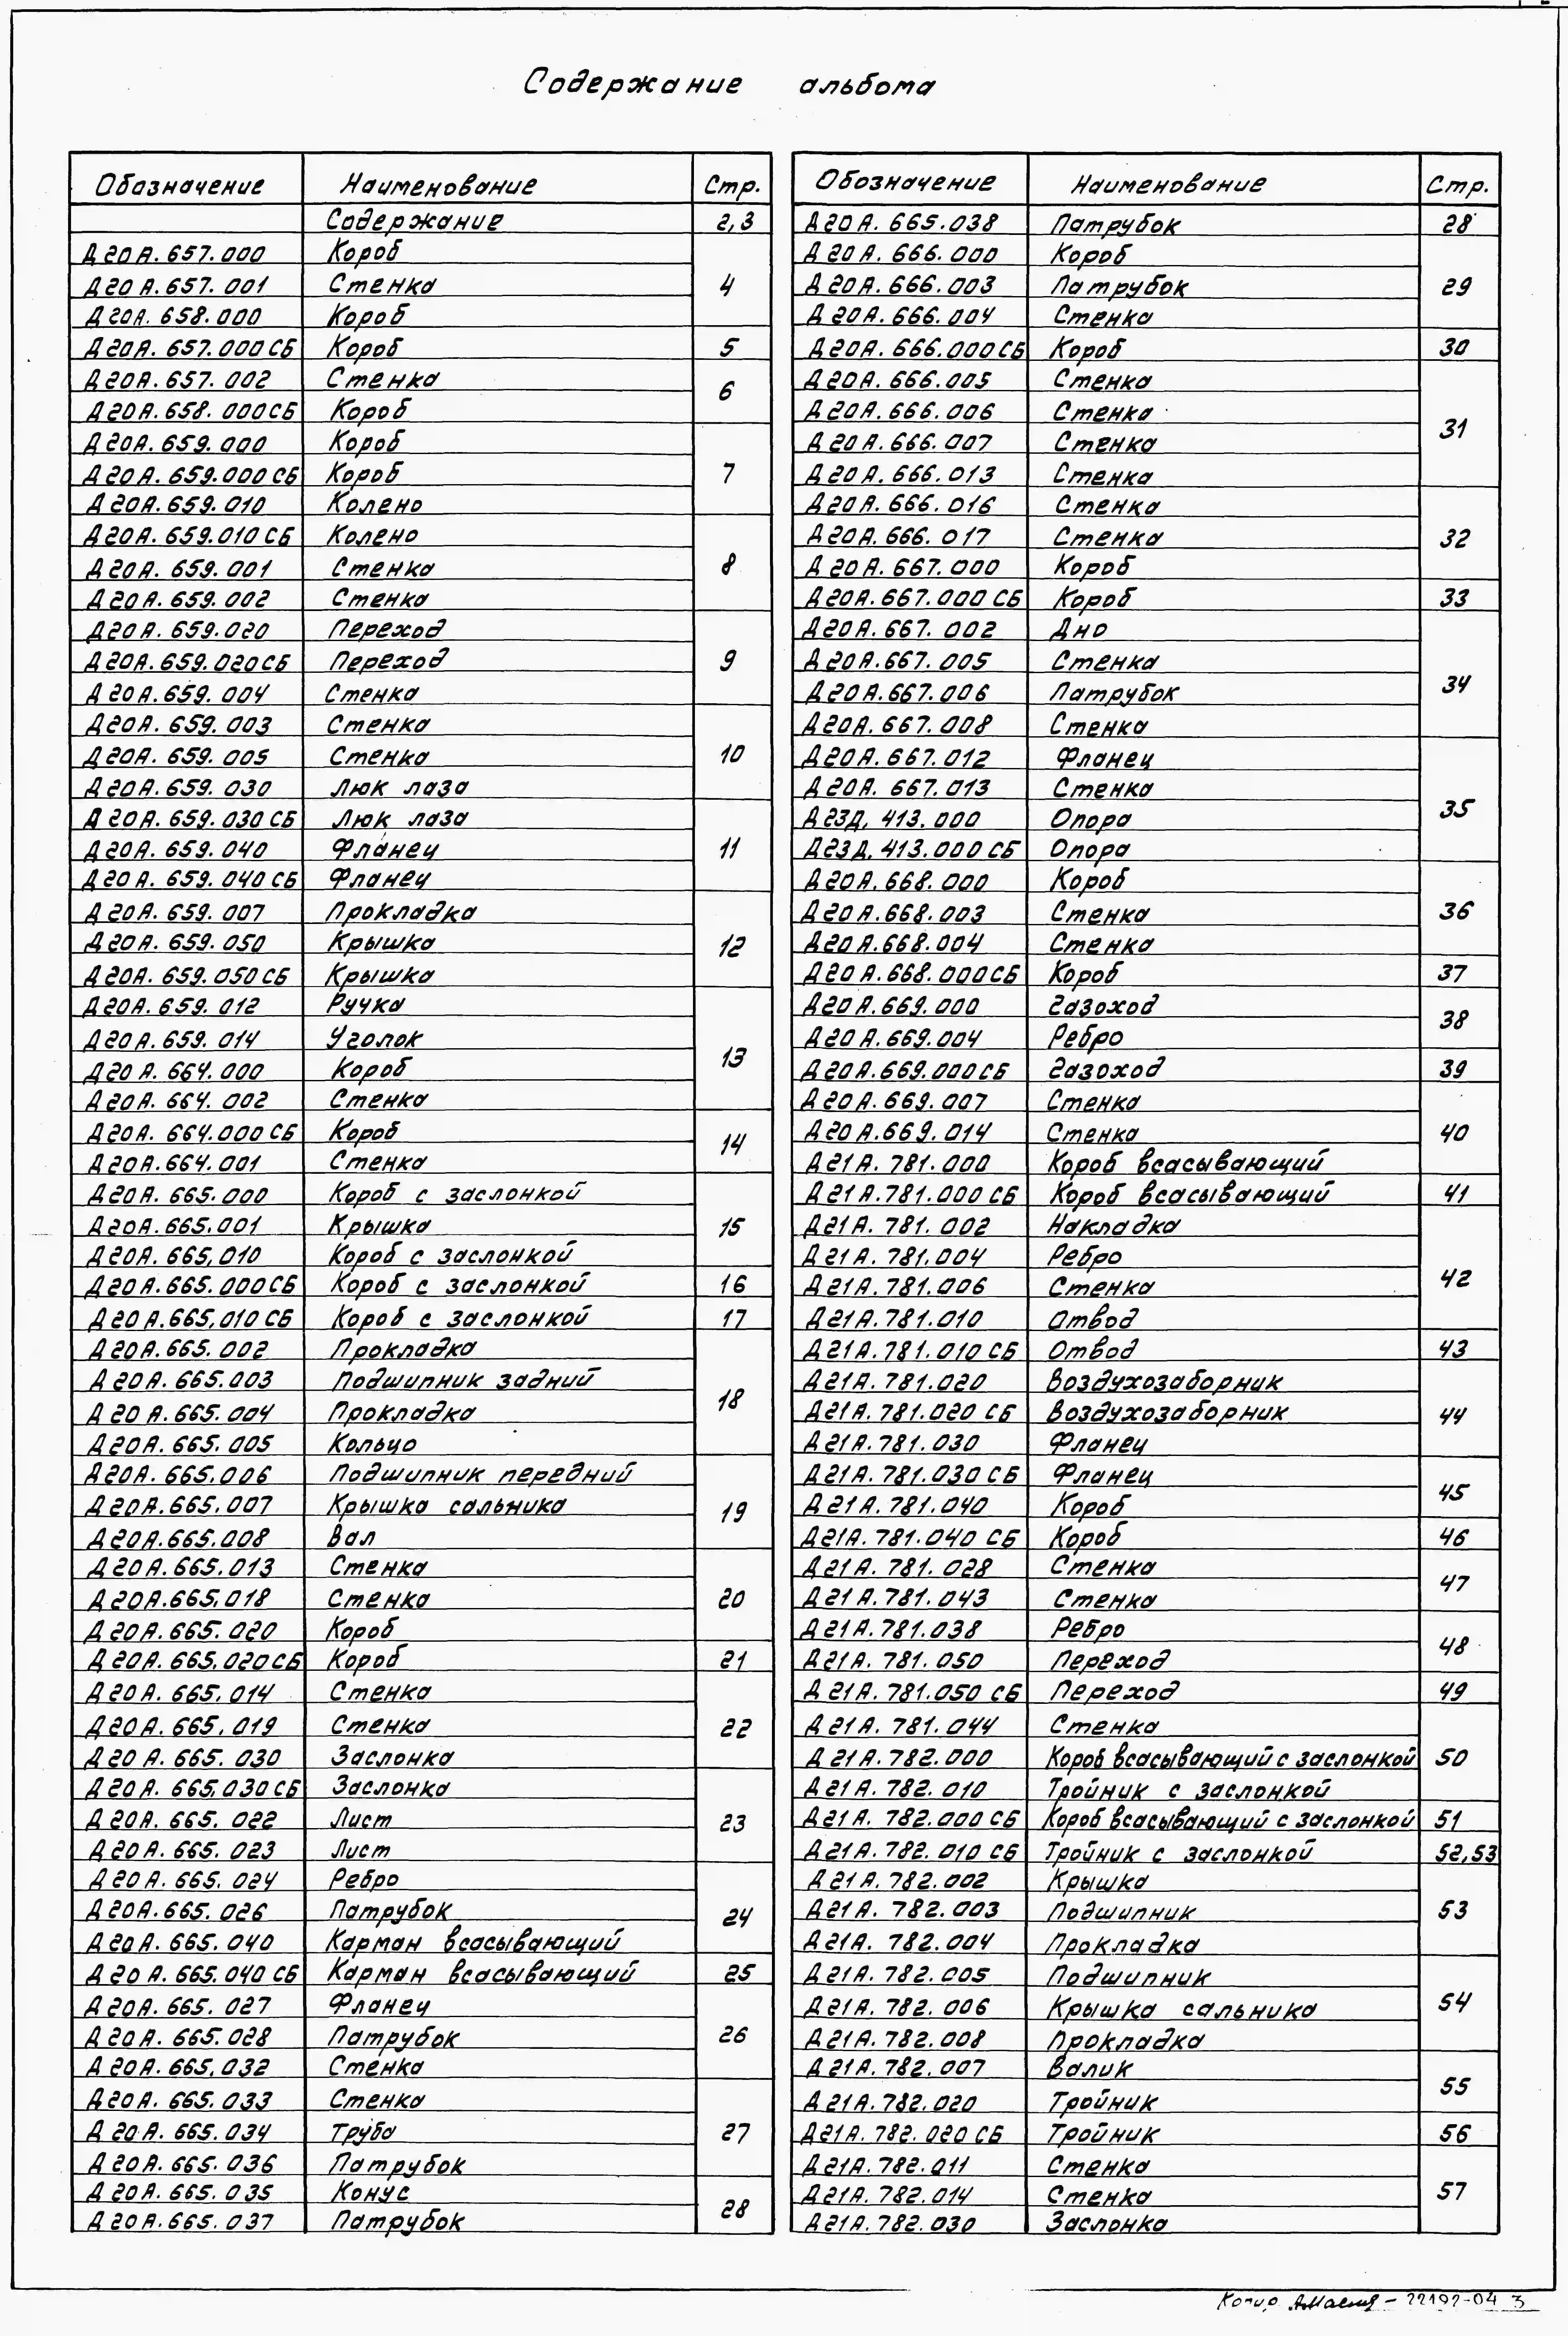 Содержание альбома
Обозначение Наименование Стр.
Содержание 2,3
Д20А.657.000 Короб
Д20А.657.001 Стенка 4
Д20А.658.000 Короб
Д20А.657.000СБ Короб 5
Д20А.657.002 Стенка 6
Д20А.658.000СБ Короб
Д20А.659.000 Короб
Д20А.659.000СБ Короб 7
Д20А.659.010 Колено
Д20А.659.010СБ Колено
Д20А.659.001 Стенка 8
Д20А.659.002 Стенка
Д20А.659.020 Переход
Д20А.659.020СБ Переход 9
Д20А.659.004 Стенка
Д20А.659.003 Стенка
Д20А.659.005 Стенка 10
Д20А.659.030 Люк лаза
Д20А.659.030СБ Люк лаза
Д20А.659.040 Фланец 11
Д20А.659.040СБ Фланец
Д20А.659.007 Прокладка
Д20А.659.050 Крышка 12
Д20А.659.050СБ Крышка
Д20А.659.012 Ручка
Д20А.659.014 Уголок
Д20А.664.000 Короб 13
Д20А.664.002 Стенка
Д20А.664.000СБ Короб 14
Д20А.664.001 Стенка
Д20А.665.000 Короб с заслонкой
Д20А.665.001 Крышка 15
Д20А.665.010 Короб с заслонкой
Д20А.665.000СБ Короб с заслонкой 16
Д20А.665.010СБ Короб с заслонкой 17
Д20А.665.002 Прокладка
Д20А.665.003 Подшипник задний
Д20А.665.004 Прокладка 18
Д20А.665.005 Кольцо
Д20А.665.006 Подшипник передний
Д20А.665.007 Крышка сальника 19
Д20А.665.008 Вал
Д20А.665.013 Стенка
Д20А.665.018 Стенка 20
Д20А.665.020 Короб
Д20А.665.020СБ Короб 21
Д20А.665.014 Стенка
Д20А.665.019 Стенка 22
Д20А.665.030 Заслонка
Д20А.665.030СБ Заслонка
Д20А.665.022 Лист 23
Д20А.665.023 Лист
Д20А.665.024 Ребро
Д20А.665.026 Патрубок 24
Д20А.665.040 Карман всасывающий
Д20А.665.040СБ Карман всасывающий 25
Д20А.665.027 Фланец
Д20А.665.028 Патрубок 26
Д20А.665.032 Стенка
Д20А.665.033 Стенка
Д20А.665.034 Труба 27
Д20А.665.036 Патрубок
Д20А.665.035 Конус 28
Д20А.665.037 Патрубок
Обозначение Наименование Стр.
Д20А.665.038 Патрубок 28
Д20А.666.000 Короб
Д20А.666.003 Патрубок 29
Д20А.666.004 Стенка
Д20А.666.000СБ Короб 30
Д20А.666.005 Стенка
Д20А.666.006 Стенка 31
Д20А.666.007 Стенка
Д20А.666.013 Стенка
Д20А.666.016 Стенка
Д20А.666.017 Стенка 32
Д20А.667.000 Короб
Д20А.667.000СБ Короб 33
Д20А.667.002 Дно
Д20А.667.005 Стенка
Д20А.667.006 Патрубок 34
Д20А.667.008 Стенка
Д20А.667.012 Фланец
Д20А.667.013 Стенка 35
Д23Д.413.000 Опора
Д23Д.413.000СБ Опора
Д20А.668.000 Короб
Д20А.668.003 Стенка 36
Д20А.668.004 Стенка
Д20А.668.000СБ Короб 37
Д20А.669.000 Газоход 38
Д20А.669.004 Ребро
Д20А.669.000СБ Газоход 39
Д20А.669.007 Стенка
Д20А.669.014 Стенка 40
Д21А.781.000 Короб всасывающий
Д21А.781.000СБ Короб всасывающий 41
Д21А.781.002 Накладка
Д21А.781.004 Ребро
Д21А.781.006 Стенка 42
Д21А.781.010 Отвод
Д21А.781.010СБ Отвод 43
Д21А.781.020 Воздухозаборник
Д21А.781.020СБ Воздухозаборник 44
Д21А.781.030 Фланец
Д21А.781.030СБ Фланец 45
Д21А.781.040 Короб
Д21А.781.040СБ Короб 46
Д21А.781.028 Стенка 47
Д21А.781.043 Стенка
Д21А.781.038 Ребро 48
Д21А.781.050 Переход
Д21А.781.050СБ Переход 49
Д21А.781.044 Стенка
Д21А.782.000 Короб всасывающий с заслонкой 50
Д21А.782.010 Тройник с заслонкой
Д21А.782.000СБ Короб всасывающий с заслонкой 51
Д21А.782.010СБ Тройник с заслонкой 52,53
Д21А.782.002 Крышка
Д21А.782.003 Подшипник 53
Д21А.782.004 Прокладка
Д21А.782.005 Подшипник
Д21А.782.006 Крышка сальника 54
Д21А.782.008 Прокладка
Д21А.782.007 Валик 55
Д21А.782.020 Тройник
Д21А.782.020СБ Тройник 56
Д21А.782.011 Стенка
Д21А.782.014 Стенка 57
Д21А.782.030 Заслонка
Копир. 22192-04 3